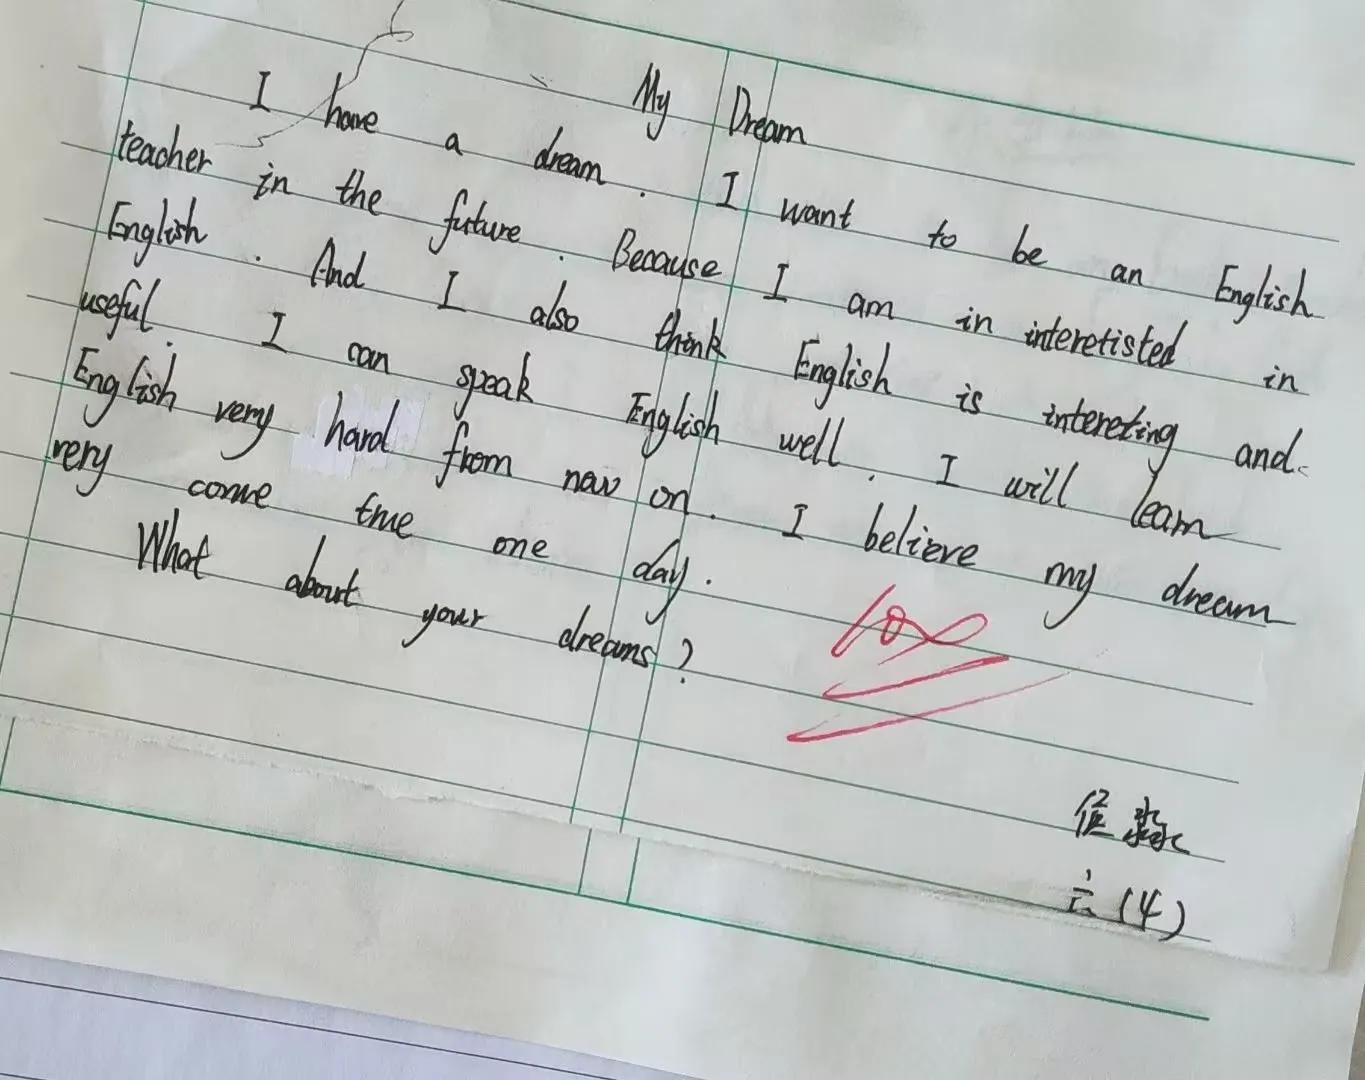 My Dream
I have a dream. I want to be an English
teacher in the future. Because I am in interetisted in
English. And I also think English is intereting and
useful. I can speak English well. I will learn
English very hard from now on. I believe my dream
very come true one day.
What about your dreams?
100
六(4)